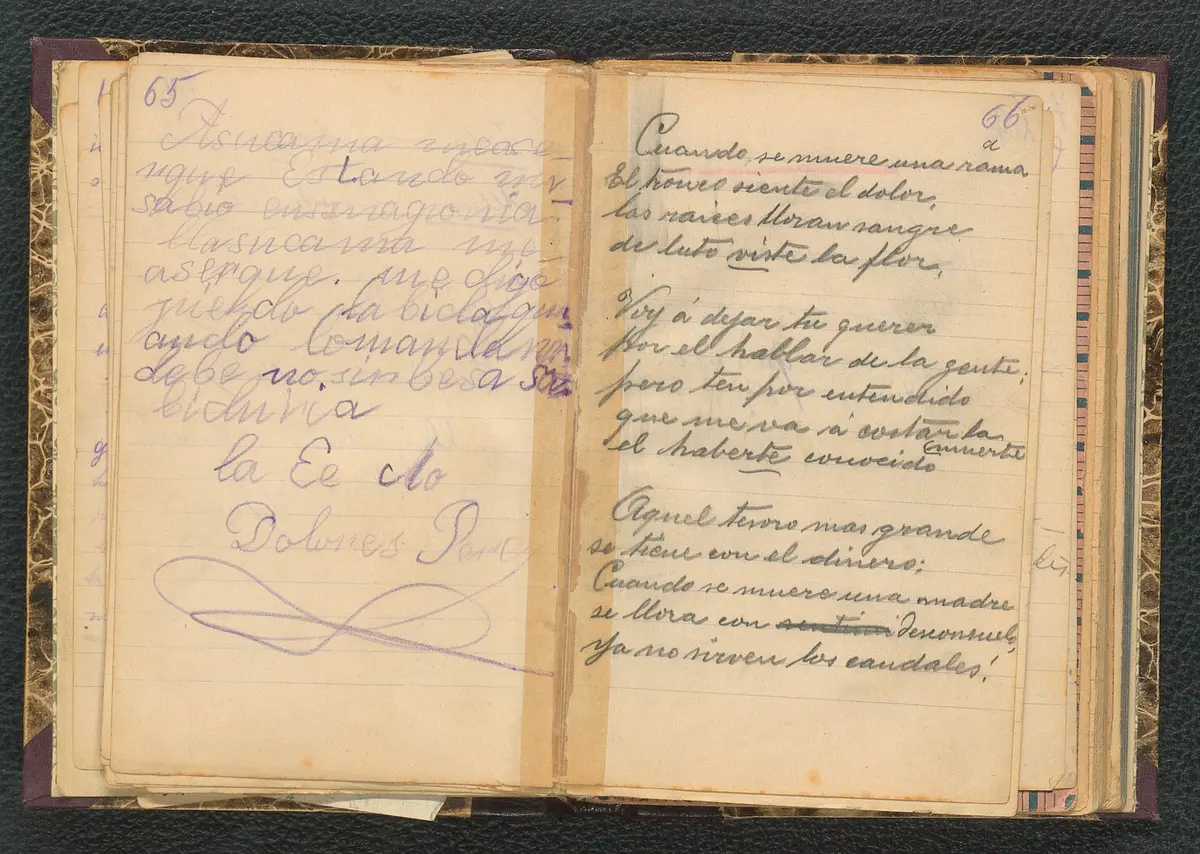 65
Asucama measer
ngue Estando mi
sabio ensuagionia
Ilasucama me
aserque. me digo
juendo la bida
ando lomanda
debe no. sin besa sa
biduria
la Ee cto
Dolores
66
Cuando se muere una rama
El tronco siente el dolor,
las raices lloran sangre
de luto viste la flor.
Voy á dejar tu querer
Por el hablar de la gente;
pero ten por entendido
que me va á costar la
muerte
el haberte conocido
Aquel tesoro mas grande
se tiene con el dinero;
Cuando se muere una madre
se llora con sentimi desconsuelo,
Ya no sirven los caudales!